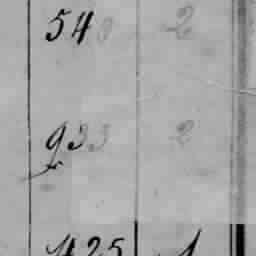 540 2
933 2
425 1